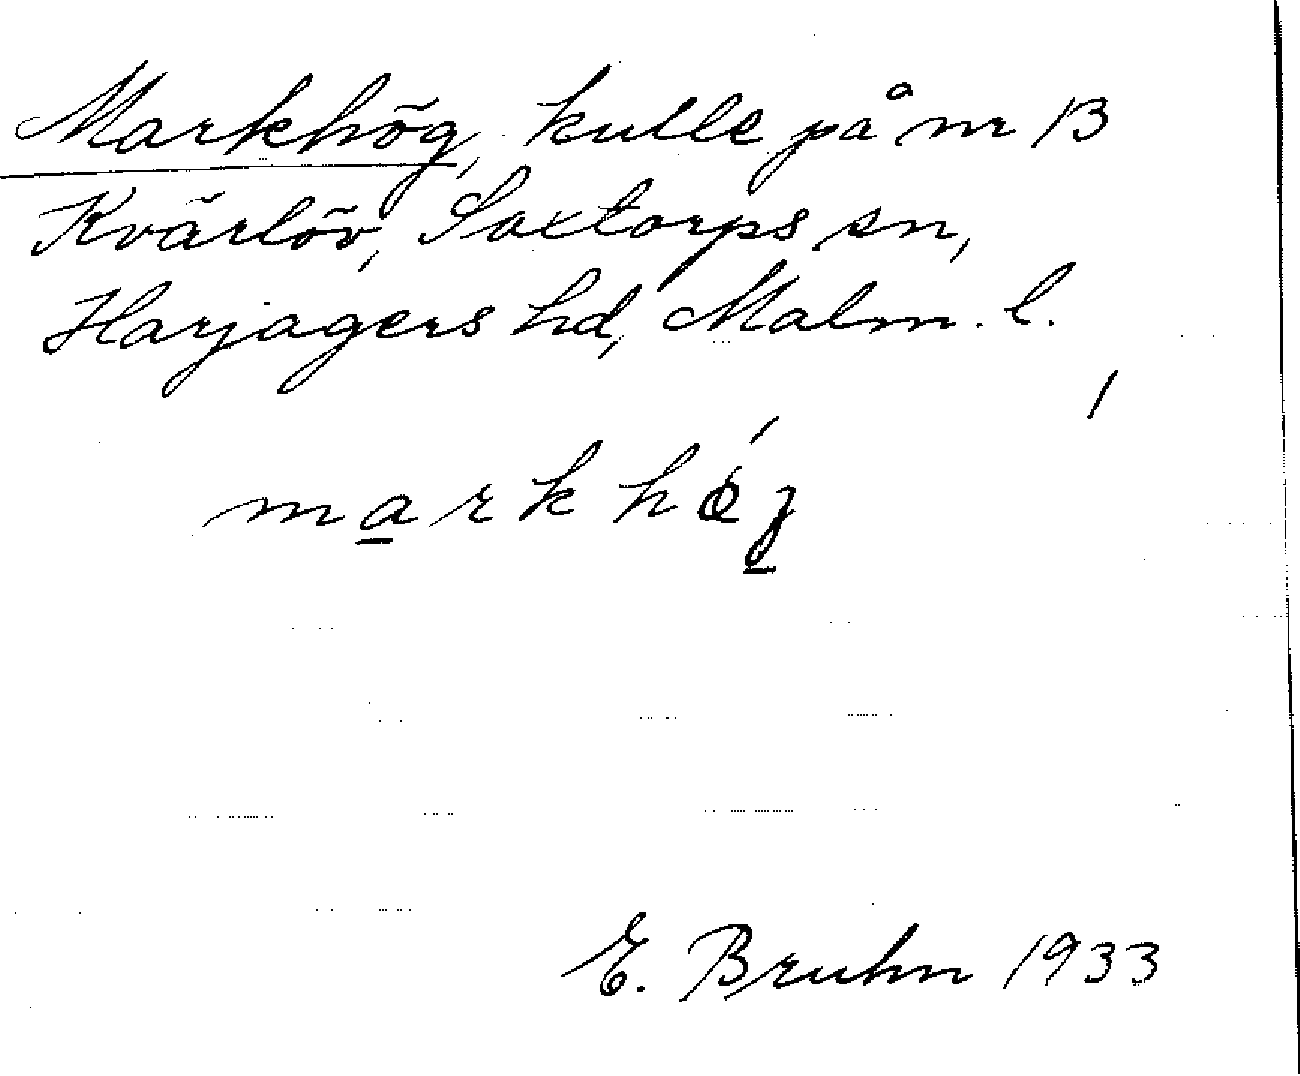 Markhög, kulle på nr 13
Kvärlöv, Saxtorps sn,
Harjagers hd, Malm. l.
markhög
E. Bruhn 1933